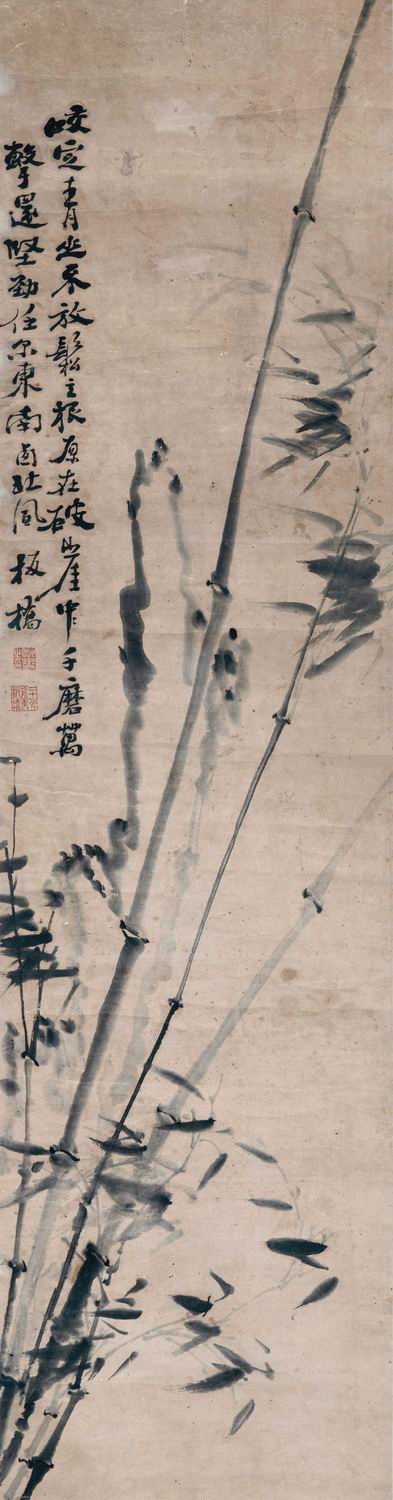 咬定青山不放鬆立根原在破崖中千磨萬
擊還堅勁任尔東南西北風 板橋